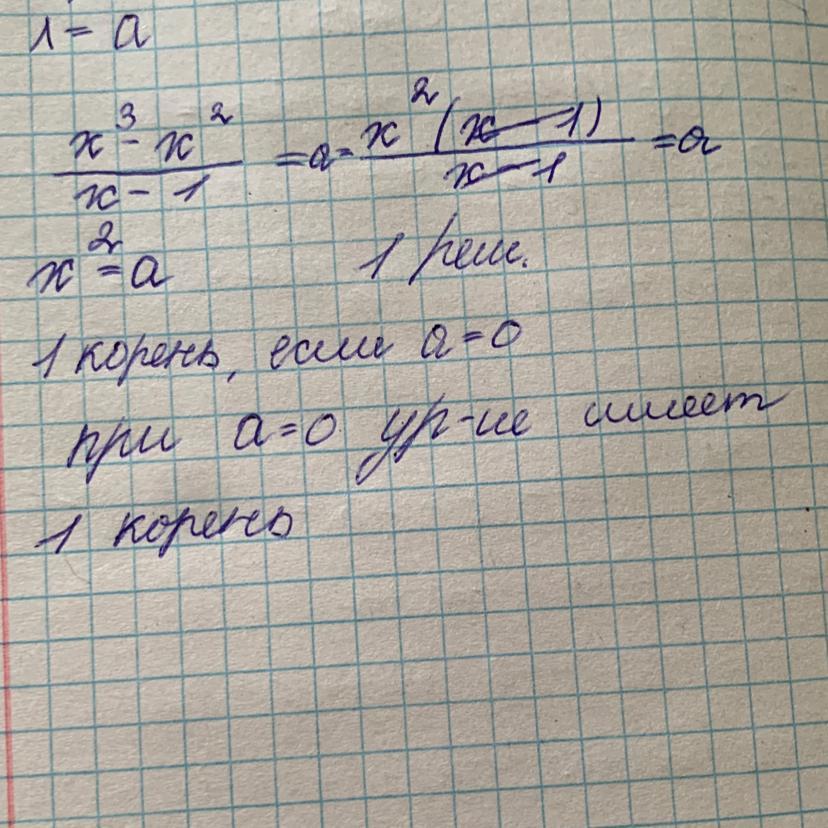 1 = a
x³ - x² / x - 1 = a = x² (x - 1) / x - 1 = a
x² = a 1 реш.
1 корень, если a = 0
при a = 0 ур-ие имеет
1 корень